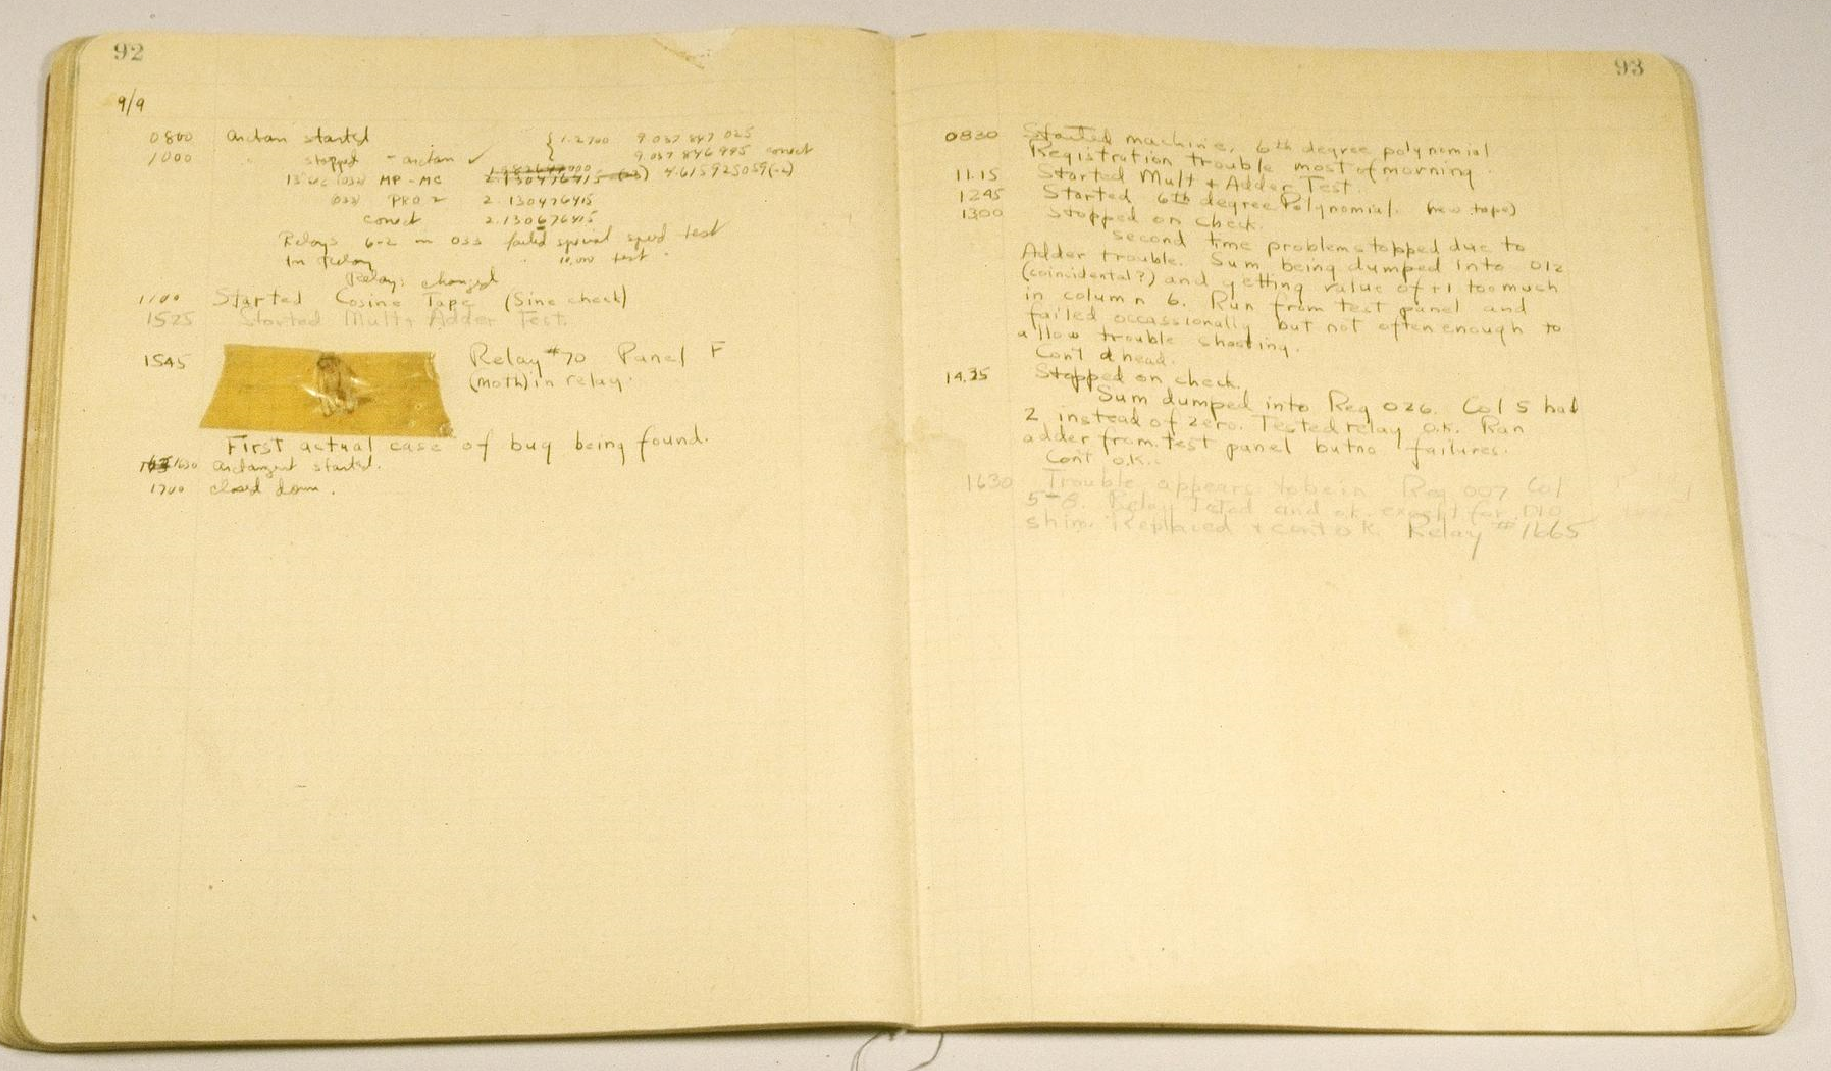 92
9/9
0800 antan started
1000 " stopped - antan ✓
{ 1.2700 9.037 847 025
{ 9.037 846 995 correct
13"uc (032) MP-MC 2.130476415 4.615925059(-2)
(033) PRO 2 2.130476415
correct 2.130676415
Relays 6-2 in 033 failed special speed test
In Relay " 10,000 test.
Relays changed
1100 Started Cosine Tape (Sine check)
1525 Started Mult+ Adder Test.
1545 Relay #70 Panel F
(moth) in relay.
First actual case of bug being found.
1630 antangent started.
1700 closed down.
93
0830 Started machine. 6th degree polynomial
Registration trouble most of morning.
11.15 Started Mult + Adder Test.
1245 Started 6th degree Polynomial. (new tape)
1300 Stopped on check.
Second time problem stopped due to
Adder trouble. Sum being dumped into 012
(coincidental?) and getting value of +1 too much
in column 6. Run from test panel and
failed occassionally but not often enough to
allow trouble shooting.
Con't ahead.
14.25 Stopped on check.
Sum dumped into Reg 026. Col 5 had
2 instead of zero. Tested relay o.k. Ran
adder from test panel but no failures.
Con't o.k.
1630 Trouble appears to be in Reg 007 Col
5-8. Relay tested and ok except for
shim. Replaced + con't o.k. Relay #1665